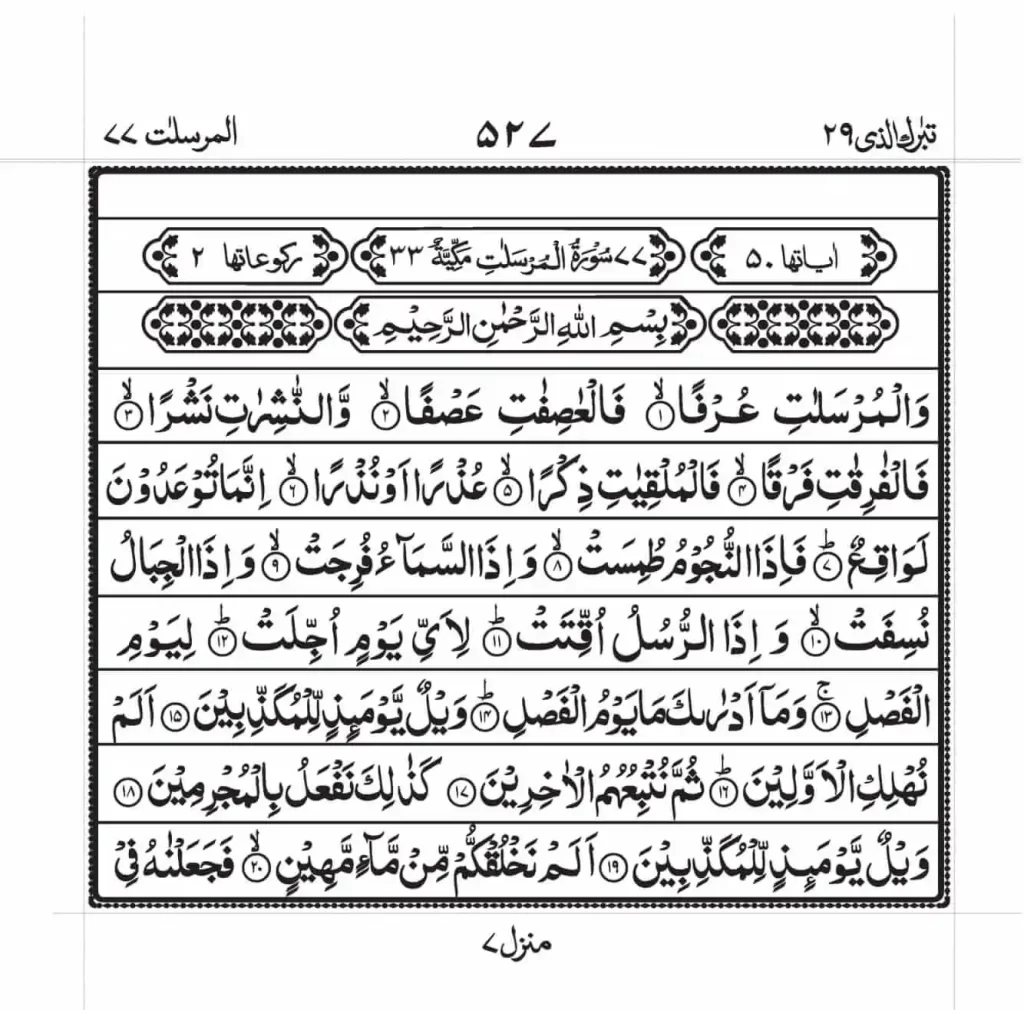 تبٰرك الذى ٢٩
۵۲۷
المرسلٰت ۷۷
اٰیاتها ۵۰
۷۷ سُوْرَةُ الْمُرْسَلٰتِ مَکِّیَّةٌ ۳۳
رکوعاتها ۲
بِسْمِ اللهِ الرَّحْمٰنِ الرَّحِيْمِ
وَالْمُرْسَلٰتِ عُرْفًا ۙ﴿۱﴾ فَالْعٰصِفٰتِ عَصْفًا ۙ﴿۲﴾ وَّالنّٰشِرٰتِ نَشْرًا ۙ﴿۳﴾
فَالْفٰرِقٰتِ فَرْقًا ۙ﴿۴﴾ فَالْمُلْقِيٰتِ ذِكْرًا ۙ﴿۵﴾ عُذْرًا اَوْ نُذْرًا ۙ﴿۶﴾ اِنَّمَا تُوْعَدُوْنَ
لَوَاقِعٌ ؕ﴿۷﴾ فَاِذَا النُّجُوْمُ طُمِسَتْ ۙ﴿۸﴾ وَ اِذَا السَّمَآءُ فُرِجَتْ ۙ﴿۹﴾ وَ اِذَا الْجِبَالُ
نُسِفَتْ ۙ﴿۱۰﴾ وَ اِذَا الرُّسُلُ اُقِّتَتْ ؕ﴿۱۱﴾ لِاَيِّ يَوْمٍ اُجِّلَتْ ؕ﴿۱۲﴾ لِيَوْمِ
الْفَصْلِ ۚ﴿۱۳﴾ وَمَاۤ اَدْرٰىكَ مَا يَوْمُ الْفَصْلِ ؕ﴿۱۴﴾ وَيْلٌ يَّوْمَئِذٍ لِّلْمُكَذِّبِيْنَ ﴿۱۵﴾ اَلَمْ
نُهْلِكِ الْاَوَّلِيْنَ ؕ﴿۱۶﴾ ثُمَّ نُتْبِعُهُمُ الْاٰخِرِيْنَ ﴿۱۷﴾ كَذٰلِكَ نَفْعَلُ بِالْمُجْرِمِيْنَ ﴿۱۸﴾
وَيْلٌ يَّوْمَئِذٍ لِّلْمُكَذِّبِيْنَ ﴿۱۹﴾ اَلَمْ نَخْلُقْكُّمْ مِّنْ مَّآءٍ مَّهِيْنٍ ۙ﴿۲۰﴾ فَجَعَلْنٰهُ فِيْ
منزل ۷